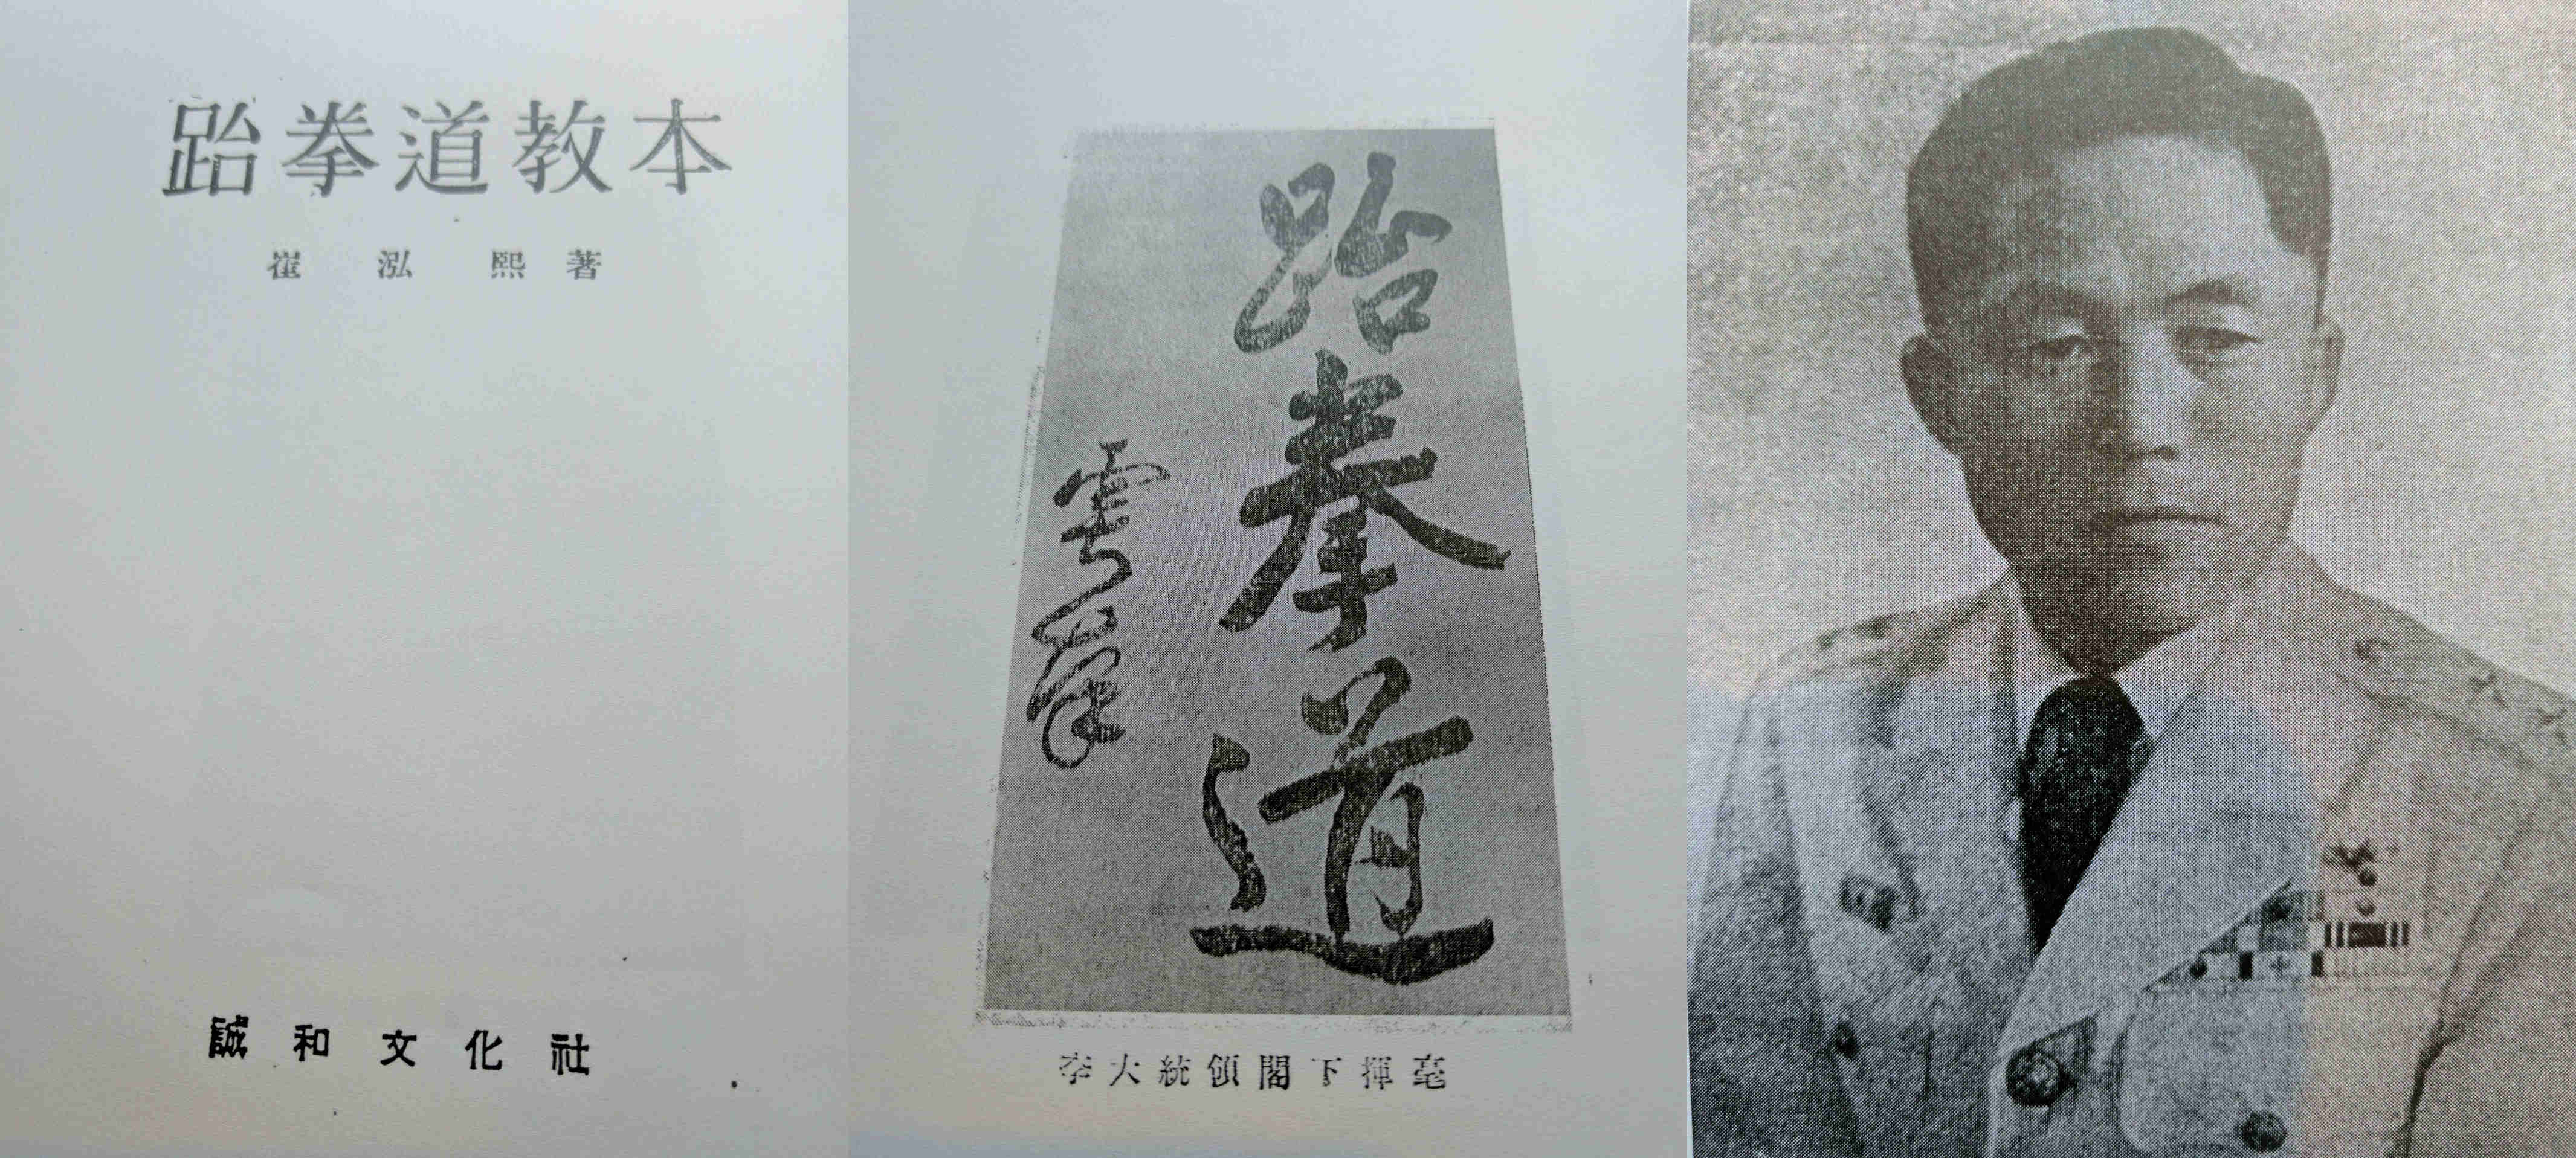 跆拳道教本
崔泓熙著
誠和文化社
跆拳道
雩南
李大統領閣下揮毫